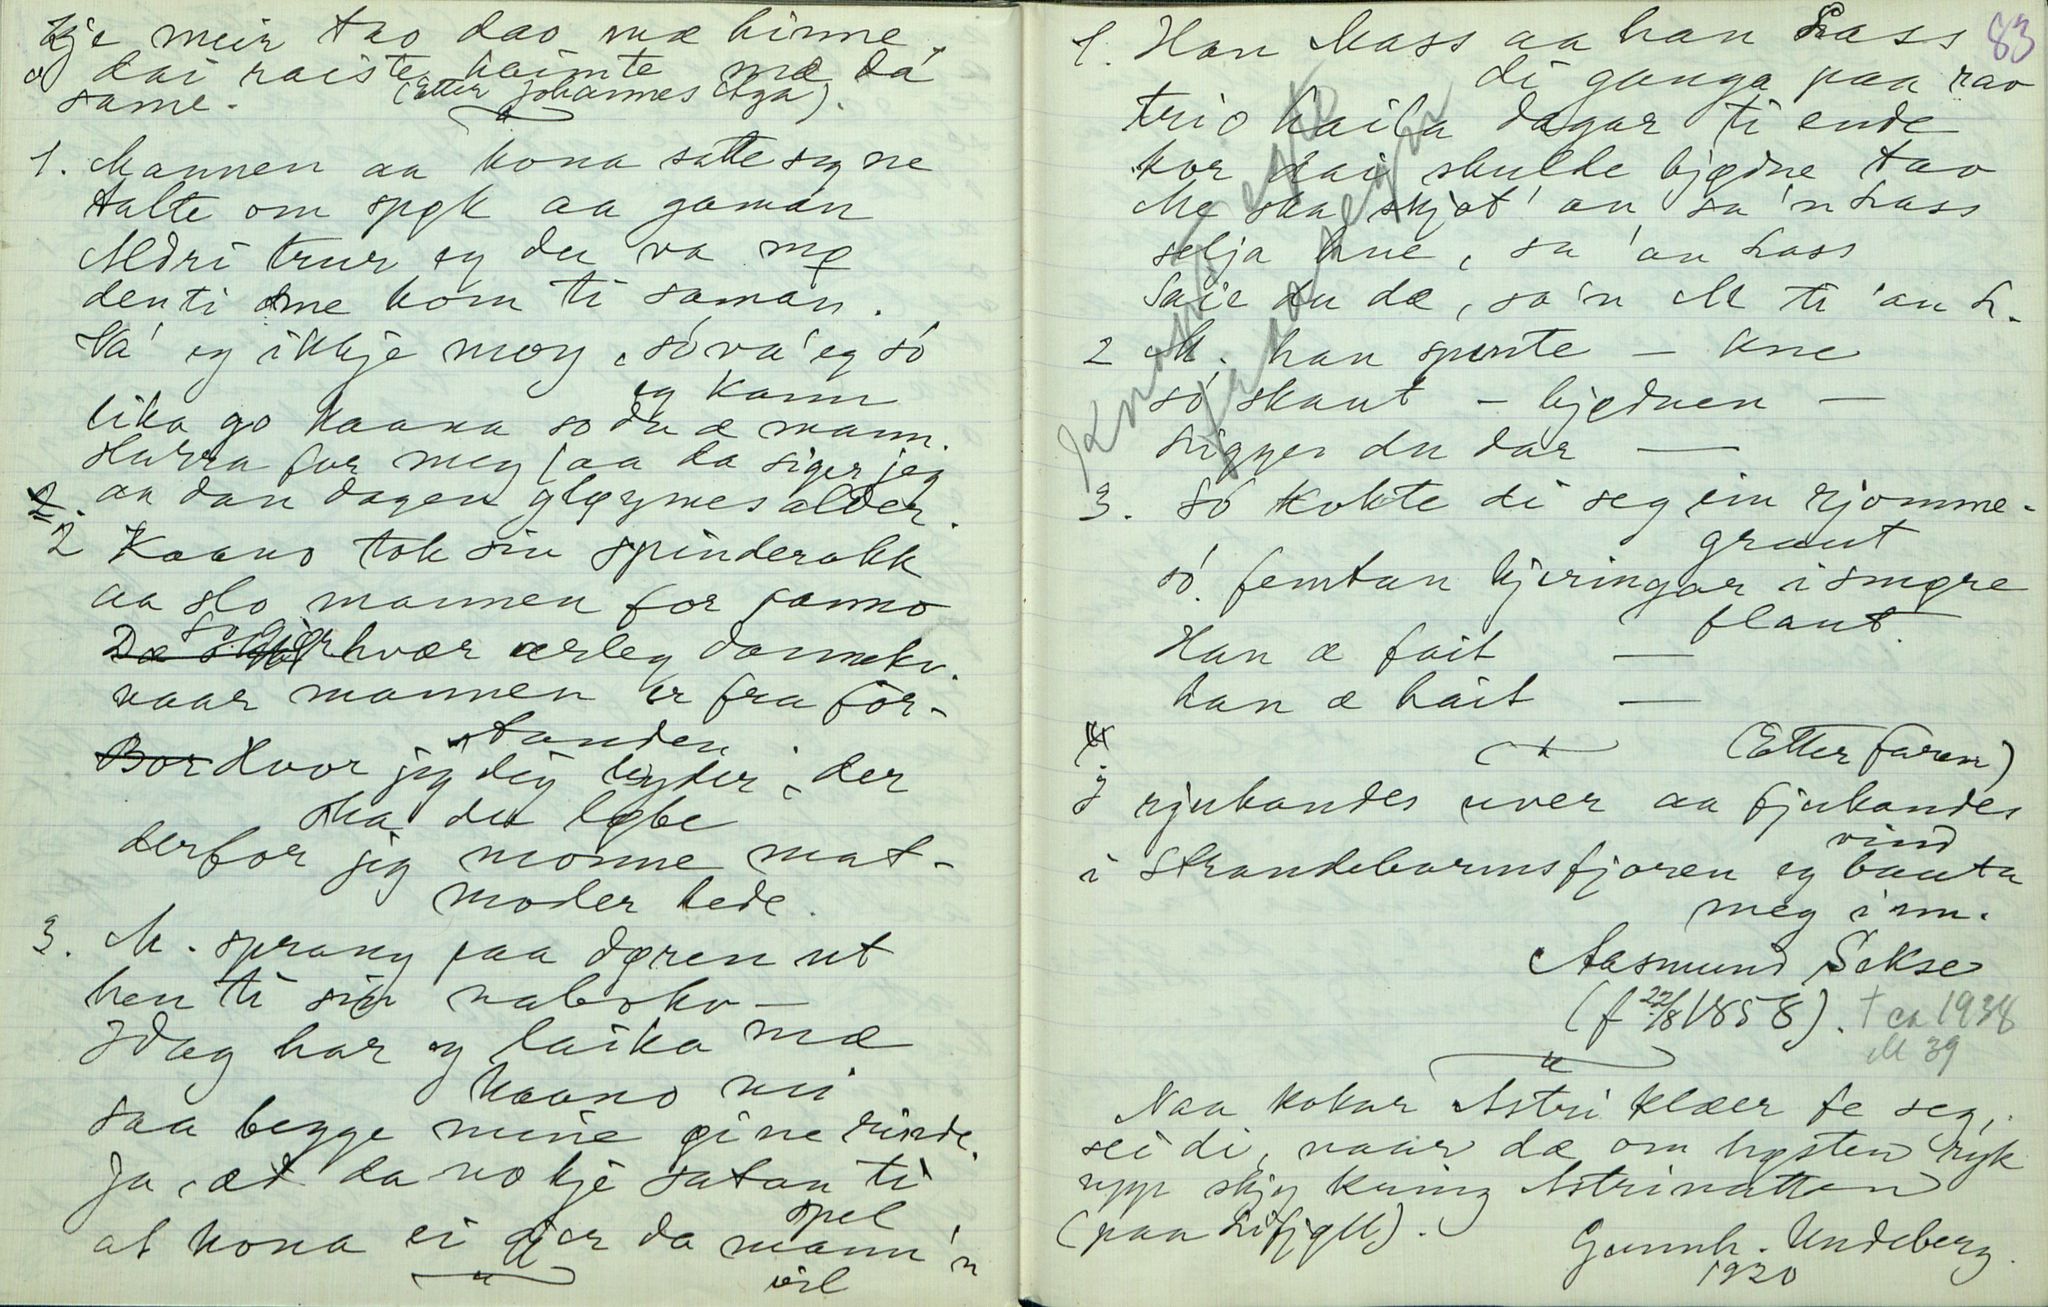 kje meir tao dao mæ hinne,
o dai raiste haimte mæ då
same. (Etter Johannes Aga).
1. Mannen aa kona satte seg ne
talte om spøk aa gaman
Aldri trur eg du va mø
den ti me kom ti saman.
Va' eg ikkje moy, so va' eg so
eg kann
lika go kaana so du æ mann.
Hurra for meg (aa da siger jeg
aa dan dagen gløymes alder.
2 Kaano tok sin spinderokk
aa slo mannen for panno
So gjør hvær ærleg danneko.
naar mannen er fra for-
standen
Hvor jeg dig byder, der
ska du løbe
derfor jeg monne mat-
moder hede.
3. M. sprang paa døren ut
hen ti sin nabsko –
Idag har eg laika mæ
kaano mi
saa begge mine øine rinde.
Ja, æd da no kje satan ti
spel
at kona ei gjer da mann'n
vil
83
1. Han Mass aa han Lass
di ganga paa rao
trio haila dagar ti ende
kor dai skulde bjødne tao
Me ska skjot' an sa'n Lass
selja hue, sa 'an Lass
Saie du dæ, sa'n M ti 'an L.
2 M. han spente – kne
so skaut – bjødnen –
Ligger du dar —
3. So kokte di seg ein rjomme-
graut
so femtan kjeringar i smøre
flaut.
Han æ fait —
han æ hait —
(Etter faren)
I rjukandes uver aa fjukandes
vind
i Strandebarmsfjoren eg bauta
meg inn.
Aasmund Sekse
(f 22/8 1858). † ca 1938
M 39
Naa kokar Astri klæer fe seg,
sei di, naar dæ om høsten ryk
upp skjy kring Astrinatten
(paa Lifjell).
Gunnh. Undeberg.
1920